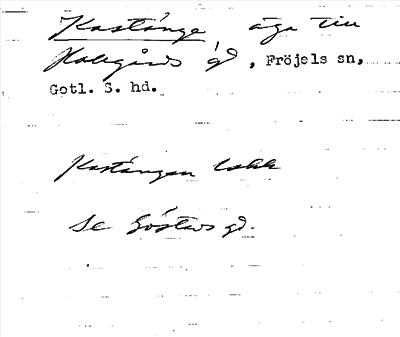 Kastänge, äga till
Hallgårds gd, Fröjels sn,
Gotl. S. hd.
Kastängen
Se Göstavs gd.